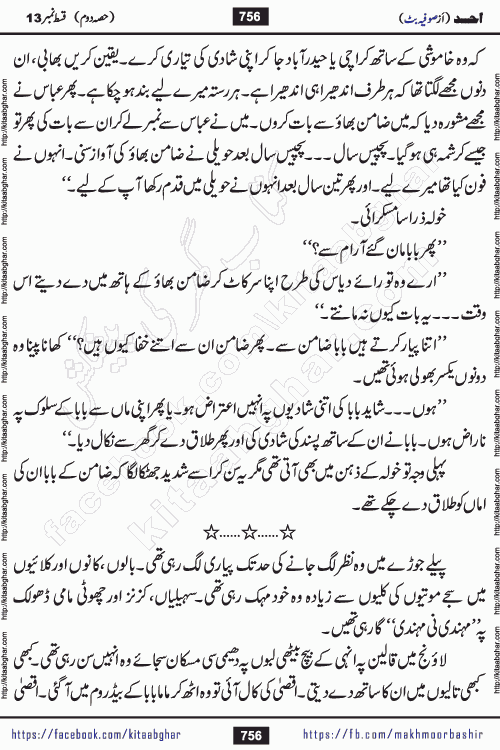 احد (از صوفیہ بٹ) 756 (حصہ دوم) قسط نمبر 13
کہ وہ خاموشی کے ساتھ کراچی یا حیدرآباد جا کر اپنی شادی کی تیاری کرے۔ یقین کریں بھابی، ان
دنوں مجھے لگتا تھا کہ ہر طرف اندھیرا ہی اندھیرا ہے۔ ہر رستہ میرے لیے بند ہو چکا ہے۔ پھر عباس نے
مجھے مشورہ دیا کہ میں ضامن بھاؤ سے بات کروں۔ میں نے عباس سے نمبر لے کر ان سے بات کی پھر تو
جیسے کرشمہ ہی ہو گیا۔ پچیس سال ۔۔۔ پچیس سال بعد حویلی نے ضامن بھاؤ کی آواز سنی۔ انہوں نے
فون کیا تھا میرے لیے۔ اور پھر تین سال بعد انہوں نے حویلی میں قدم رکھا آپ کے لیے۔‘‘
خولہ ذرا سا مسکرائی۔
’’پھر بابا مان گئے آرام سے؟‘‘
’’ارے وہ تو رائے دیاس کی طرح اپنا سر کاٹ کر ضامن بھاؤ کے ہاتھ میں دے دیتے اس
وقت ۔۔۔ یہ بات کیوں نہ مانتے۔‘‘
’’اتنا پیار کرتے ہیں بابا ضامن سے۔ پھر ضامن ان سے اتنے خفا کیوں ہیں؟‘‘ کھانا پینا وہ
دونوں یکسر بھولی ہوئی تھیں۔
’’ہوں ۔۔۔ شاید بابا کی اتنی شادیوں پہ انہیں اعتراض ہو۔ یا پھر اپنی ماں سے بابا کے سلوک پہ
ناراض ہوں۔ بابا نے ان کے ساتھ پسند کی شادی کی اور پھر طلاق دے کر گھر سے نکال دیا۔‘‘
پہلی وجہ تو خولہ کے ذہن میں بھی آتی تھی مگر یہ سن کر اسے شدید جھٹکا لگا کہ ضامن کے بابا ان کی
اماں کو طلاق دے چکے تھے۔
☆......☆......☆
پیلے جوڑے میں وہ نظر لگ جانے کی حد تک پیاری لگ رہی تھی۔ بالوں، کانوں اور کلائیوں
میں سجے موتیوں کی کلیوں سے زیادہ وہ خود مہک رہی تھی۔ سہیلیاں، کزنز اور چھوٹی مامی ڈھولک
پہ ’’مہندی نی مہندی‘‘ گا رہی تھیں۔
لاؤنج میں قالین پہ انہی کے بیچ بیٹھی لبوں پہ دھیمی سی مسکان سجائے وہ انہیں سن رہی تھی۔ کبھی
کبھی تالیوں میں ان کا ساتھ دے دیتی۔ اقصیٰ کی کال آئی تو وہ اٹھ کر ماما بابا کے بیڈ روم میں آ گئی۔ اقصیٰ
https://facebook.com/kitaabghar 756 https://fb.com/makhmoorbashir
http://kitaabghar.com
کتاب گھر کی پیشکش
facebook.com/kitaabghar
kitaabghar.com